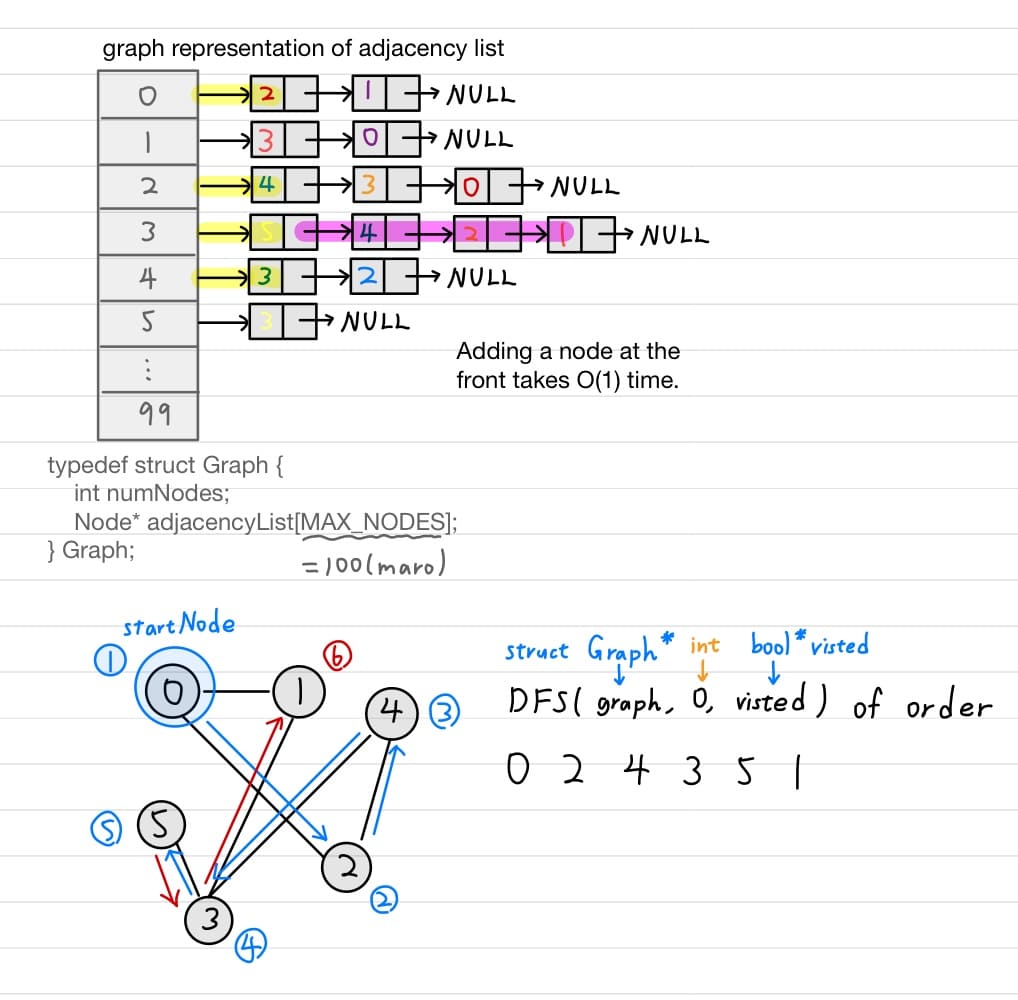 graph representation of adjacency list
0 → 2 → 1 → NULL
1 → 3 → 0 → NULL
2 → 4 → 3 → 0 → NULL
3 → 5 → 4 → 2 → 1 → NULL
4 → 3 → 2 → NULL
5 → 3 → NULL
⋮
99
Adding a node at the
front takes O(1) time.
typedef struct Graph {
int numNodes;
Node* adjacencyList[MAX_NODES];
} Graph;
=100(maro)
startNode
① 0
1 ⑥
4 ③
⑤ 5
2 ②
3 ④
struct Graph* int bool* visted
↓ ↓ ↓
DFS( graph, 0, visted ) of order
0 2 4 3 5 1